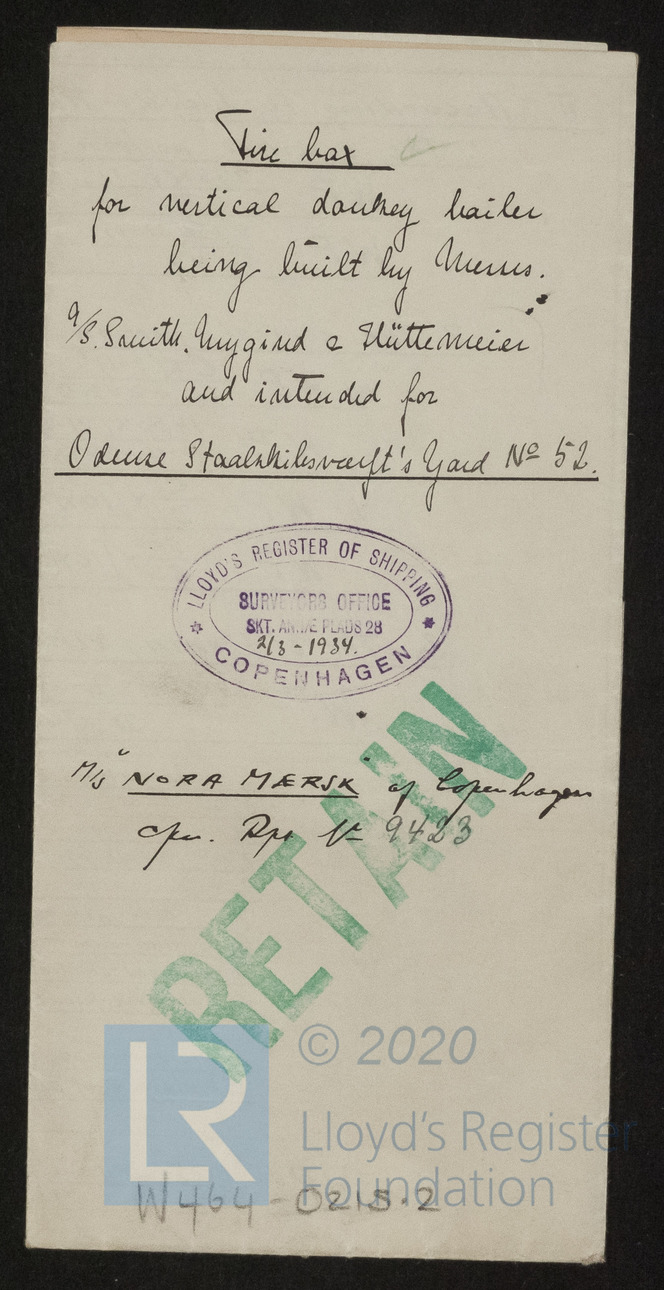 Fire box
for vertical donkey boiler
being built by Messrs.
A/S. Smith, Mygind & Hüttemeier
and intended for
Odense Staalskibsværft's Yard No 52.
LLOYD'S REGISTER OF SHIPPING
SURVEYORS OFFICE
SKT. ANNÆ PLADS 28
2/3 - 1934.
COPENHAGEN
M/S "NORA MÆRSK" of Copenhagen
Cpn. Rpt No 9423
RETAIN
© 2020
LR
Lloyd's Register
Foundation
W464-0215.2